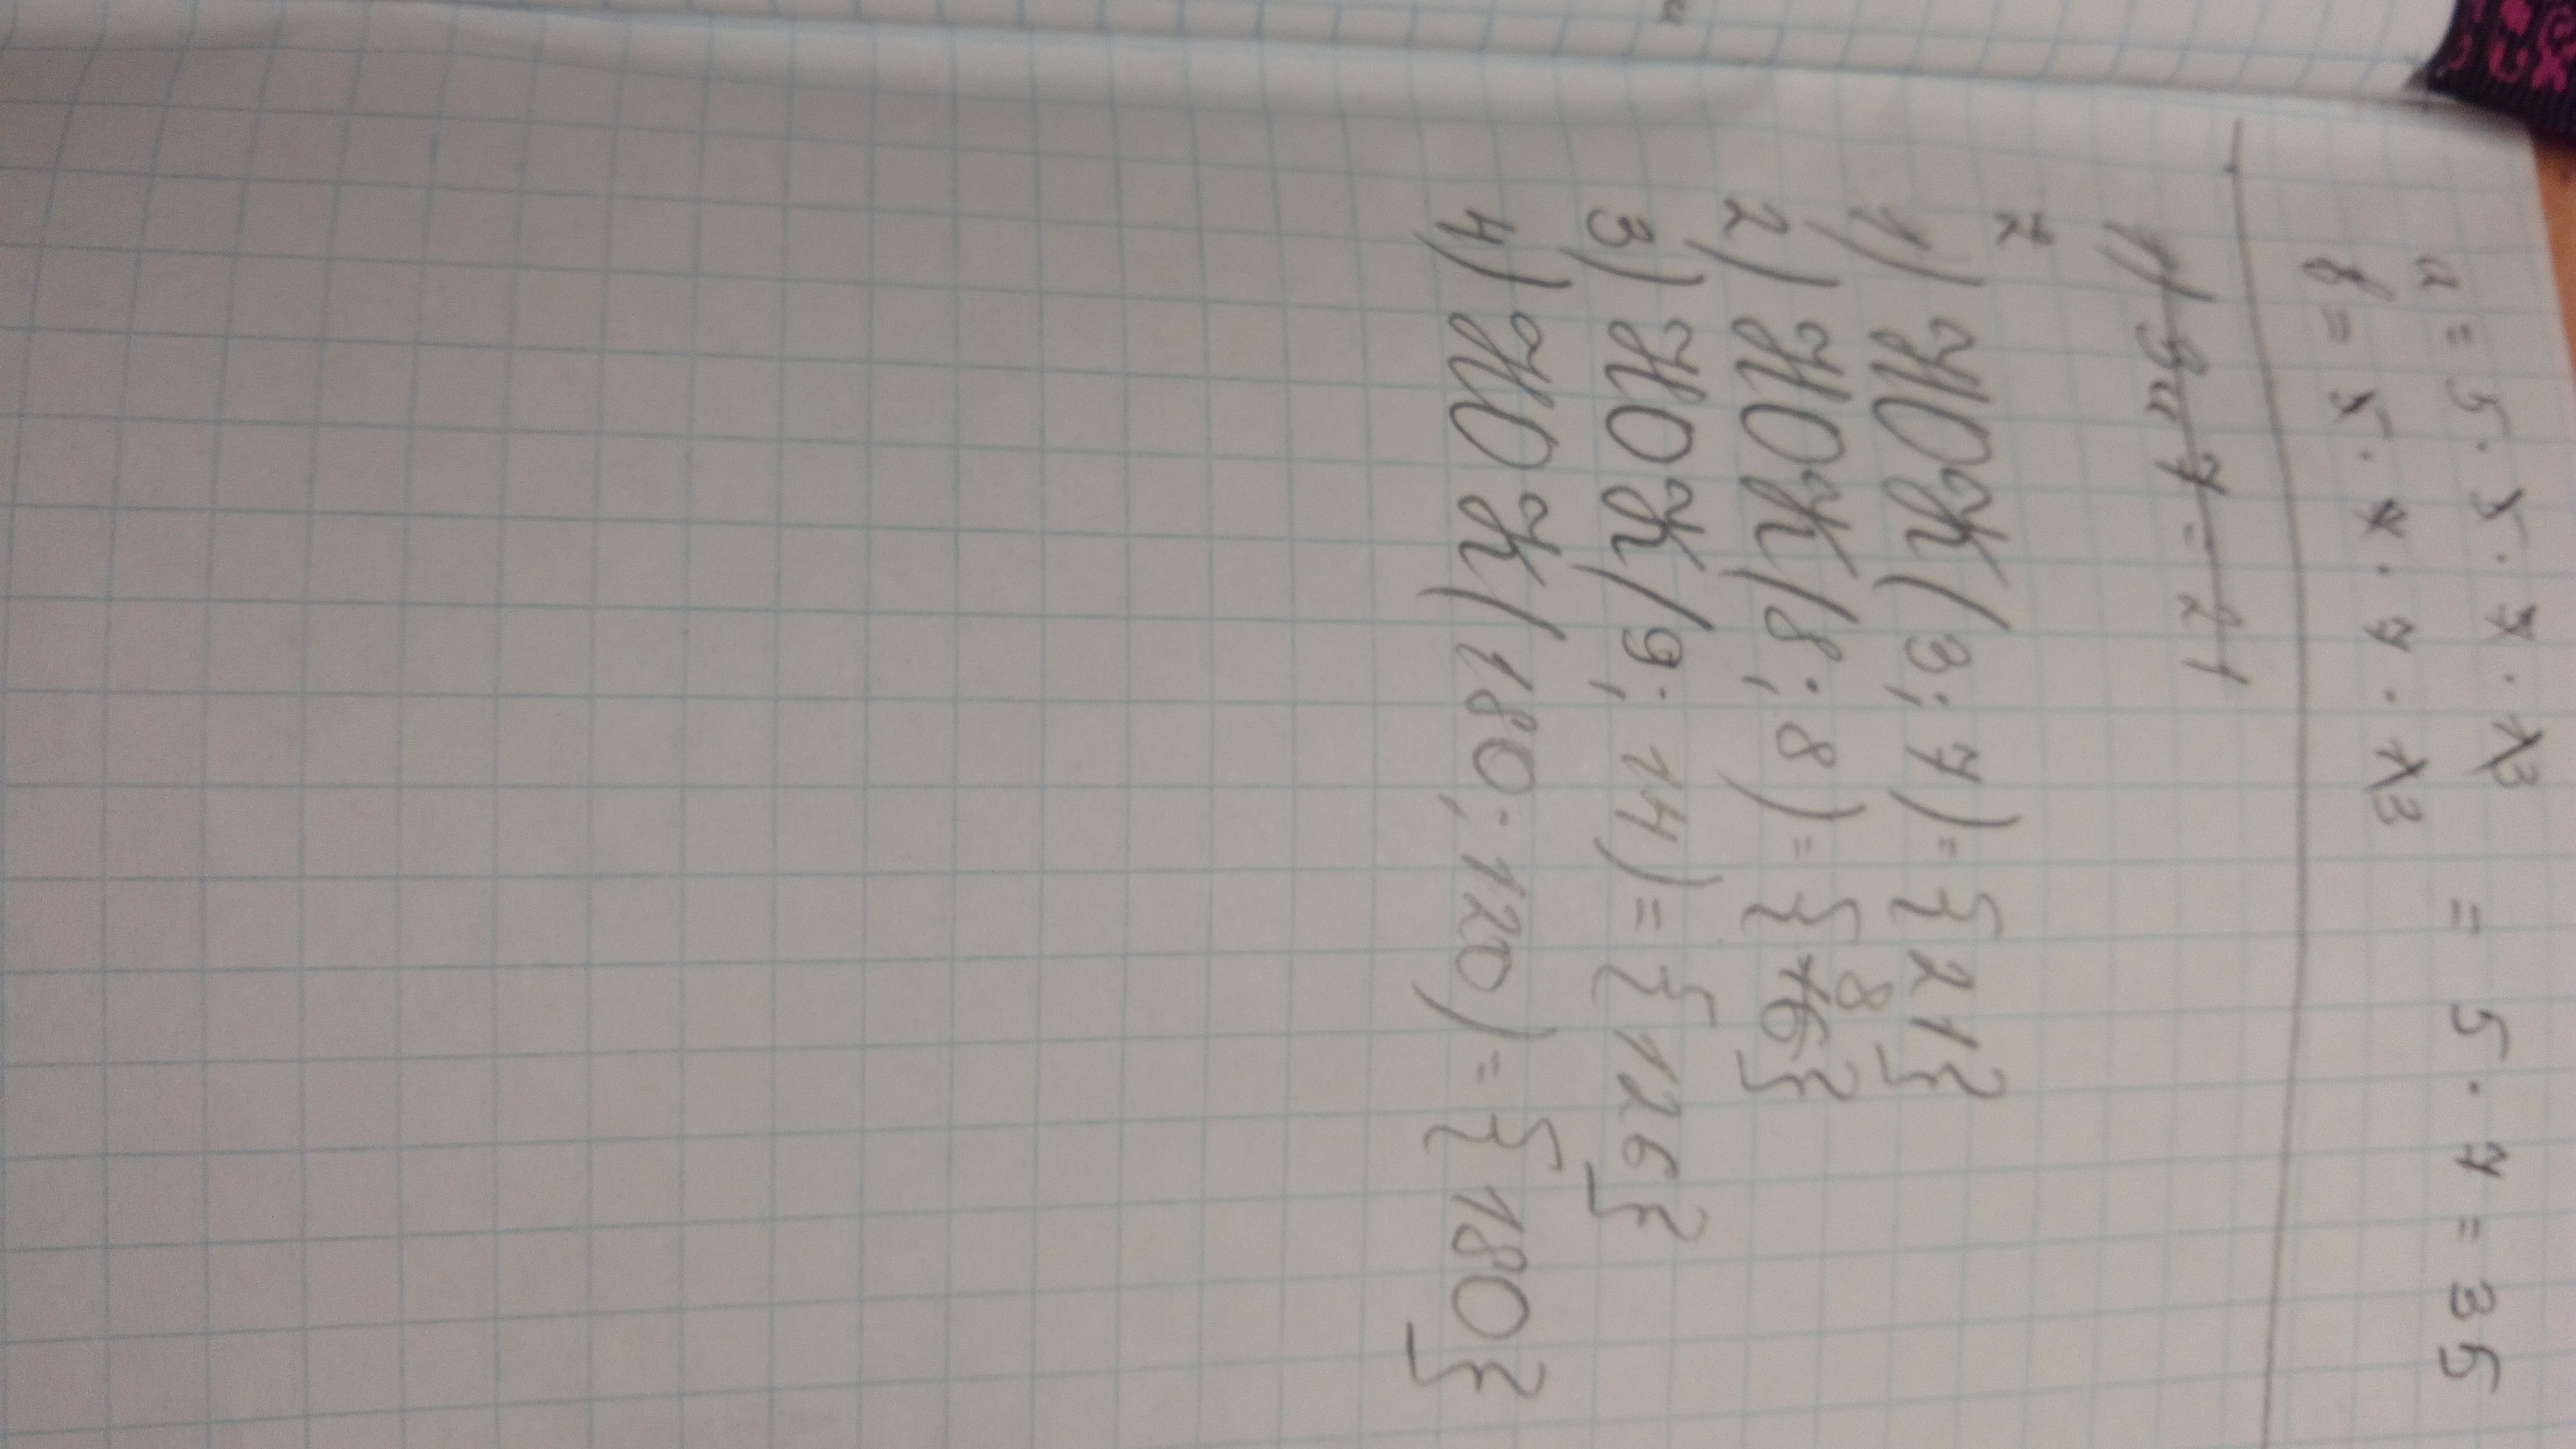 a = 5 · 5 · 7 · 13 = 5 · 7 = 35
b = 5 · 7 · 7 · 13
1) 3 и 7 = 21
2
1) НОК (3; 7) = {21}
2) НОК (8; 8) = {16 8}
3) НОК (9; 14) = {126}
4) НОК (180; 120) = {180}